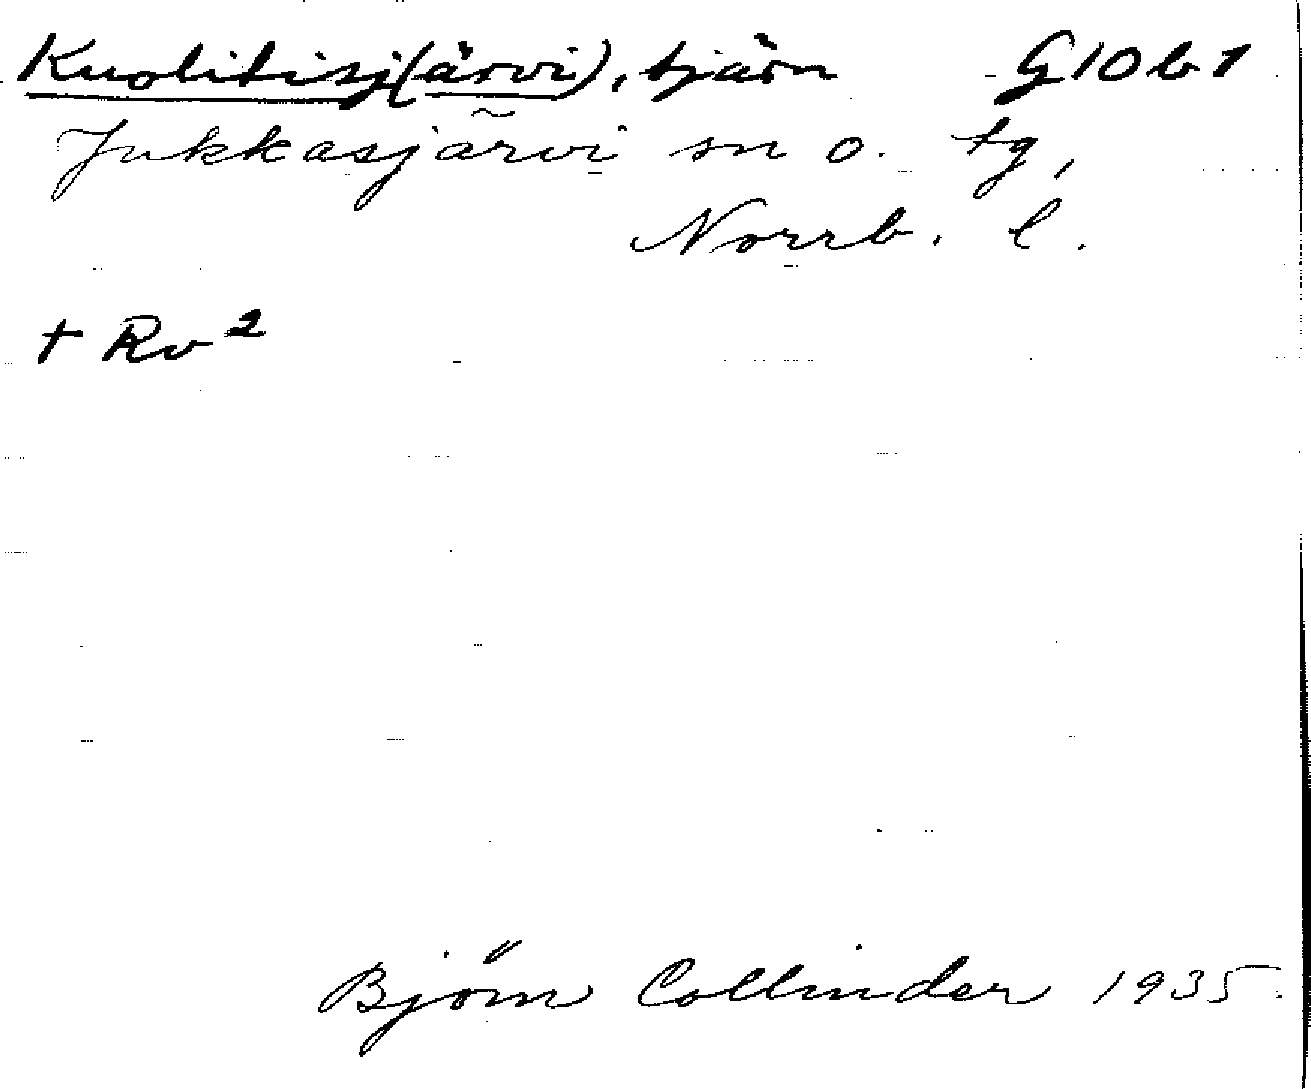 Kuolitisj(ärvi), tjärn G10b1
Jukkasjärvi sn o. tg,
Norrb. l.
+ Rv²
Björn Collinder 1935.